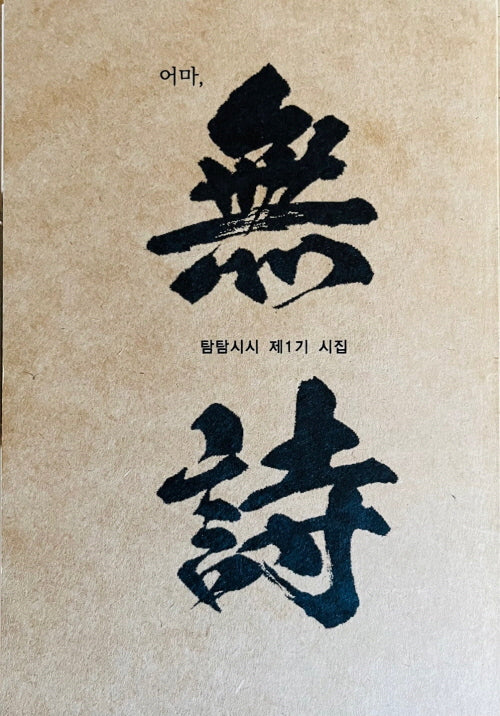 어마,
無
탐탐시시 제1기 시집
詩